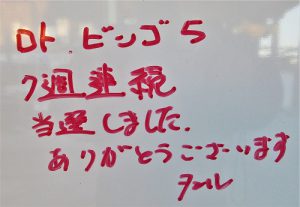 ロト.ビンゴ5
7週連続
当選しました.
ありがとうございます